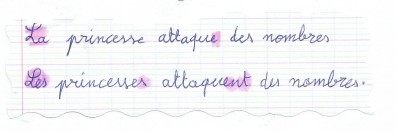 La princesse attaque des nombres
Les princesses attaquent des nombres.